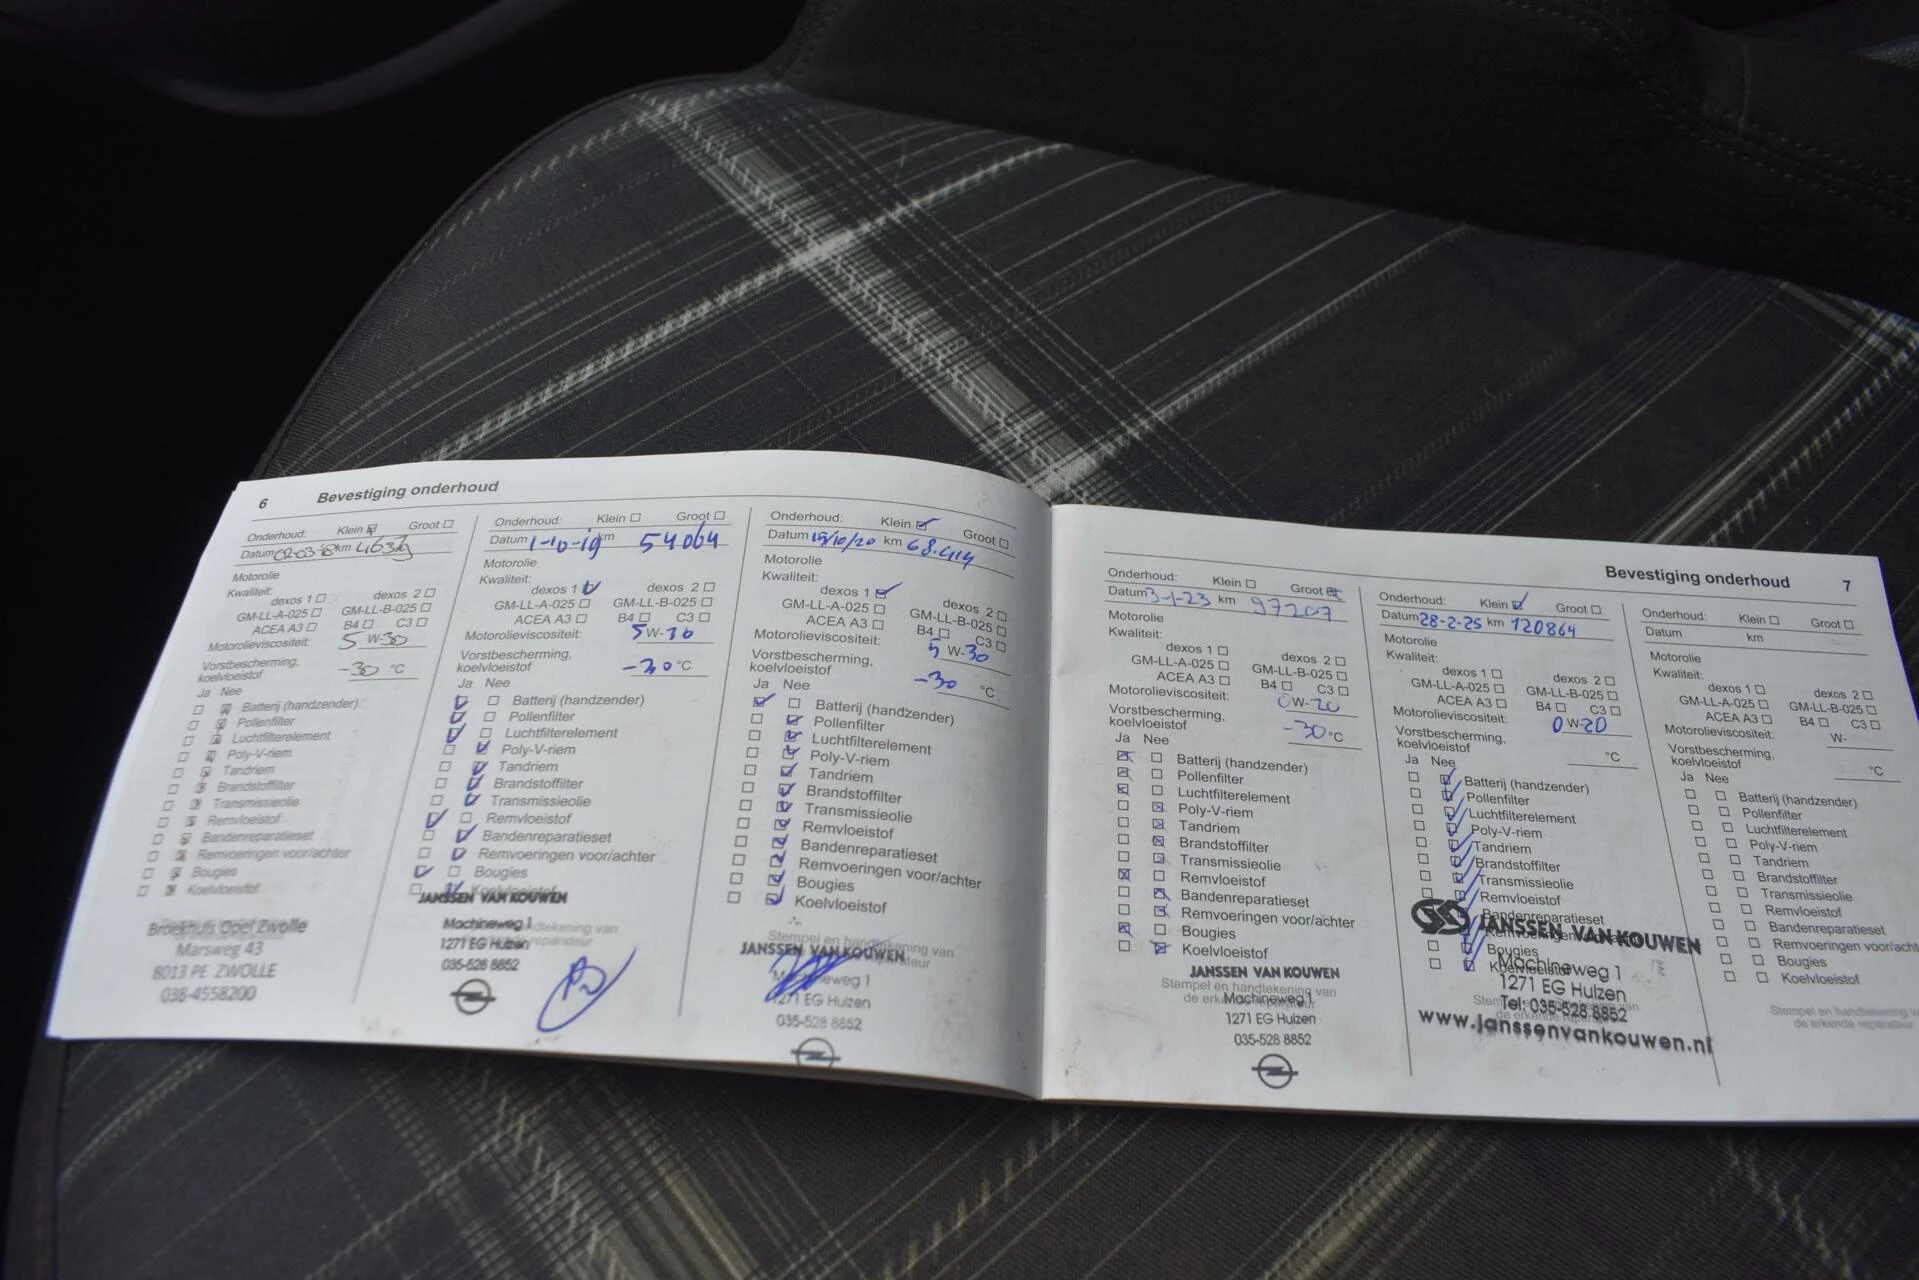 6 Bevestiging onderhoud
Onderhoud: Klein Groot
Datum 02-03-18 km
Motorolie
Kwaliteit:
dexos 1 dexos 2
GM-LL-A-025 GM-LL-B-025
ACEA A3 B4 C3
Motorolieviscositeit: 5 W-30
Vorstbescherming,
koelvloeistof -30 °C
Ja Nee
Batterij (handzender)
Pollenfilter
Luchtfilterelement
Poly-V-riem
Tandriem
Brandstoffilter
Transmissieolie
Remvloeistof
Bandenreparatieset
Remvoeringen voor/achter
Bougies
Koelvloeistof
Broekhuis Opel Zwolle
Marsweg 43
8013 PE ZWOLLE
038-4558200
Onderhoud: Klein Groot
Datum 1-10-19 km 54064
Motorolie
Kwaliteit:
dexos 1 dexos 2
GM-LL-A-025 GM-LL-B-025
ACEA A3 B4 C3
Motorolieviscositeit: 5 W-30
Vorstbescherming,
koelvloeistof -30 °C
Ja Nee
Batterij (handzender)
Pollenfilter
Luchtfilterelement
Poly-V-riem
Tandriem
Brandstoffilter
Transmissieolie
Remvloeistof
Bandenreparatieset
Remvoeringen voor/achter
Bougies
Koelvloeistof
JANSSEN VAN KOUWEN
Machineweg 1
1271 EG Huizen
035-528 8852
Onderhoud: Klein Groot
Datum 15/10/20 km 68.414
Motorolie
Kwaliteit:
dexos 1 dexos 2
GM-LL-A-025 GM-LL-B-025
ACEA A3 B4 C3
Motorolieviscositeit: 5 W-30
Vorstbescherming,
koelvloeistof -30 °C
Ja Nee
Batterij (handzender)
Pollenfilter
Luchtfilterelement
Poly-V-riem
Tandriem
Brandstoffilter
Transmissieolie
Remvloeistof
Bandenreparatieset
Remvoeringen voor/achter
Bougies
Koelvloeistof
Stempel en handtekening van
JANSSEN VAN KOUWEN
Machineweg 1
1271 EG Huizen
035-528 8852
Bevestiging onderhoud 7
Onderhoud: Klein Groot
Datum 3-1-23 km 97207
Motorolie
Kwaliteit:
dexos 1 dexos 2
GM-LL-A-025 GM-LL-B-025
ACEA A3 B4 C3
Motorolieviscositeit: 0 W-20
Vorstbescherming,
koelvloeistof -30 °C
Ja Nee
Batterij (handzender)
Pollenfilter
Luchtfilterelement
Poly-V-riem
Tandriem
Brandstoffilter
Transmissieolie
Remvloeistof
Bandenreparatieset
Remvoeringen voor/achter
Bougies
Koelvloeistof
JANSSEN VAN KOUWEN
Stempel en handtekening van
de erkende reparateur
Machineweg 1
1271 EG Huizen
035-528 8852
Onderhoud: Klein Groot
Datum 28-2-25 km 120864
Motorolie
Kwaliteit:
dexos 1 dexos 2
GM-LL-A-025 GM-LL-B-025
ACEA A3 B4 C3
Motorolieviscositeit: 0 W-20
Vorstbescherming,
koelvloeistof °C
Ja Nee
Batterij (handzender)
Pollenfilter
Luchtfilterelement
Poly-V-riem
Tandriem
Brandstoffilter
Transmissieolie
Remvloeistof
Bandenreparatieset
Remvoeringen voor/achter
Bougies
Koelvloeistof
JANSSEN VAN KOUWEN
Machineweg 1
1271 EG Huizen
Tel: 035-528 8852
www.janssenvankouwen.nl
Onderhoud: Klein Groot
Datum km
Motorolie
Kwaliteit:
dexos 1 dexos 2
GM-LL-A-025 GM-LL-B-025
ACEA A3 B4 C3
Motorolieviscositeit: W-
Vorstbescherming,
koelvloeistof °C
Ja Nee
Batterij (handzender)
Pollenfilter
Luchtfilterelement
Poly-V-riem
Tandriem
Brandstoffilter
Transmissieolie
Remvloeistof
Bandenreparatieset
Remvoeringen voor/acht
Bougies
Koelvloeistof
Stempel en handtekening v
de erkende reparateur